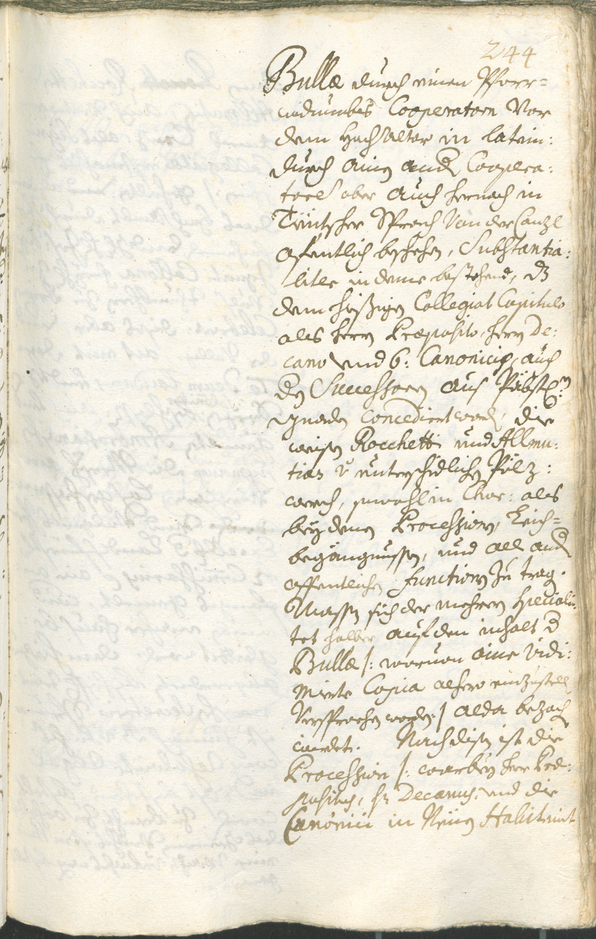 244
Bullæ durch einen Pfarr-
widumbs Cooperatorn Vor
dem Hochaltar in latein:
durch ainen andern Coopera:
tores aber auch hernach in
Teütscher Sprach Von der Canzl
offentlich beschehen, Substantia:
liter in deme bestehend, dz
dem hießigen Collegiat Capitulo
als Herrn Præposito, Herrn De:
cano vnd 6: Canonicis, auch
den Successorn auß Päbstl:
gnaden Concedirt worden, die
weisen Rocchett und Allmu:
tien v unterschidlichen Pelz:
werch, sowohl in Chor: als
bey denen Processionen, Leich-
begängnussen, und all andern
offentlichen functionen zu tragen.
Massen sich der mehrern Speciali:
tet halber auf den inhalt der
Bullæ /: woruon aine vidi:
mierte Copia alhero einzustellen
Versprochen worden :/ alda bezochen
wirdet. Nach disem ist die
Procession /: warbey Herr Præ:
positus, Hr Decanus, und die
Canonici in Neuen Habit mit